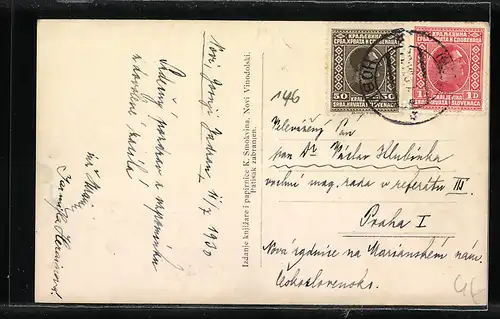 Novi, Jonji Jadran 11/7 1930
Srdečný pozdrav a vzpomínku
z dovolené zasílá
Izdanje knjižare i papirnice K. Smokvina, Novi Vinodolski.
Pretisak zabranjen.
146
КРАЉЕВИНА
СРБА, ХРВАТА И СЛОВЕНАЦА
50 50
KRALJEVINA
SRBA, HRVATA I SLOVENACA
КРАЉЕВИНА
СРБА, ХРВАТА И СЛОВЕНАЦА
1D 1D
KRALJEVINA
SRBA, HRVATA I SLOVENACA
Velevážený Pan
pan Dr Václav Hlubinka
vrchní mag. rada v referátu III
Praha I
Nová radnice na Mariánském nám.
Československo.